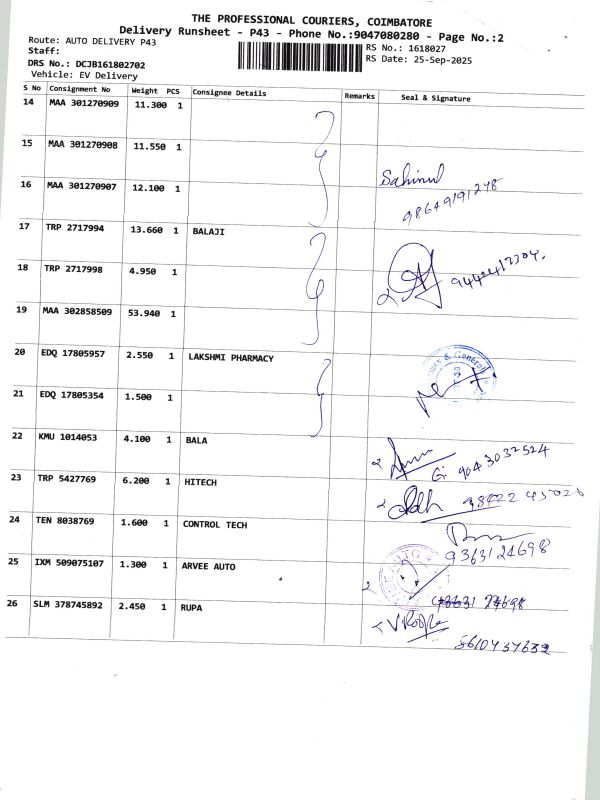 THE PROFESSIONAL COURIERS, COIMBATORE
Delivery Runsheet - P43 - Phone No.:9047080280 - Page No.:2
Route: AUTO DELIVERY P43 RS No.: 1618027
Staff: RS Date: 25-Sep-2025
DRS No.: DCJB161802702
Vehicle: EV Delivery
S No Consignment No Weight PCS Consignee Details Remarks Seal & Signature
14 MAA 301270909 11.300 1
15 MAA 301270908 11.550 1
16 MAA 301270907 12.100 1 Sahinul
98649191278
17 TRP 2717994 13.660 1 BALAJI
18 TRP 2717998 4.950 1
19 MAA 302858509 53.940 1
20 EDQ 17805957 2.550 1 LAKSHMI PHARMACY
& General
21 EDQ 17805354 1.500 1
22 KMU 1014053 4.100 1 BALA
9043032524
23 TRP 5427769 6.200 1 HITECH
24 TEN 8038769 1.600 1 CONTROL TECH
9363124698
25 IXM 509075107 1.300 1 ARVEE AUTO
AUTO
26 SLM 378745892 2.450 1 RUPA